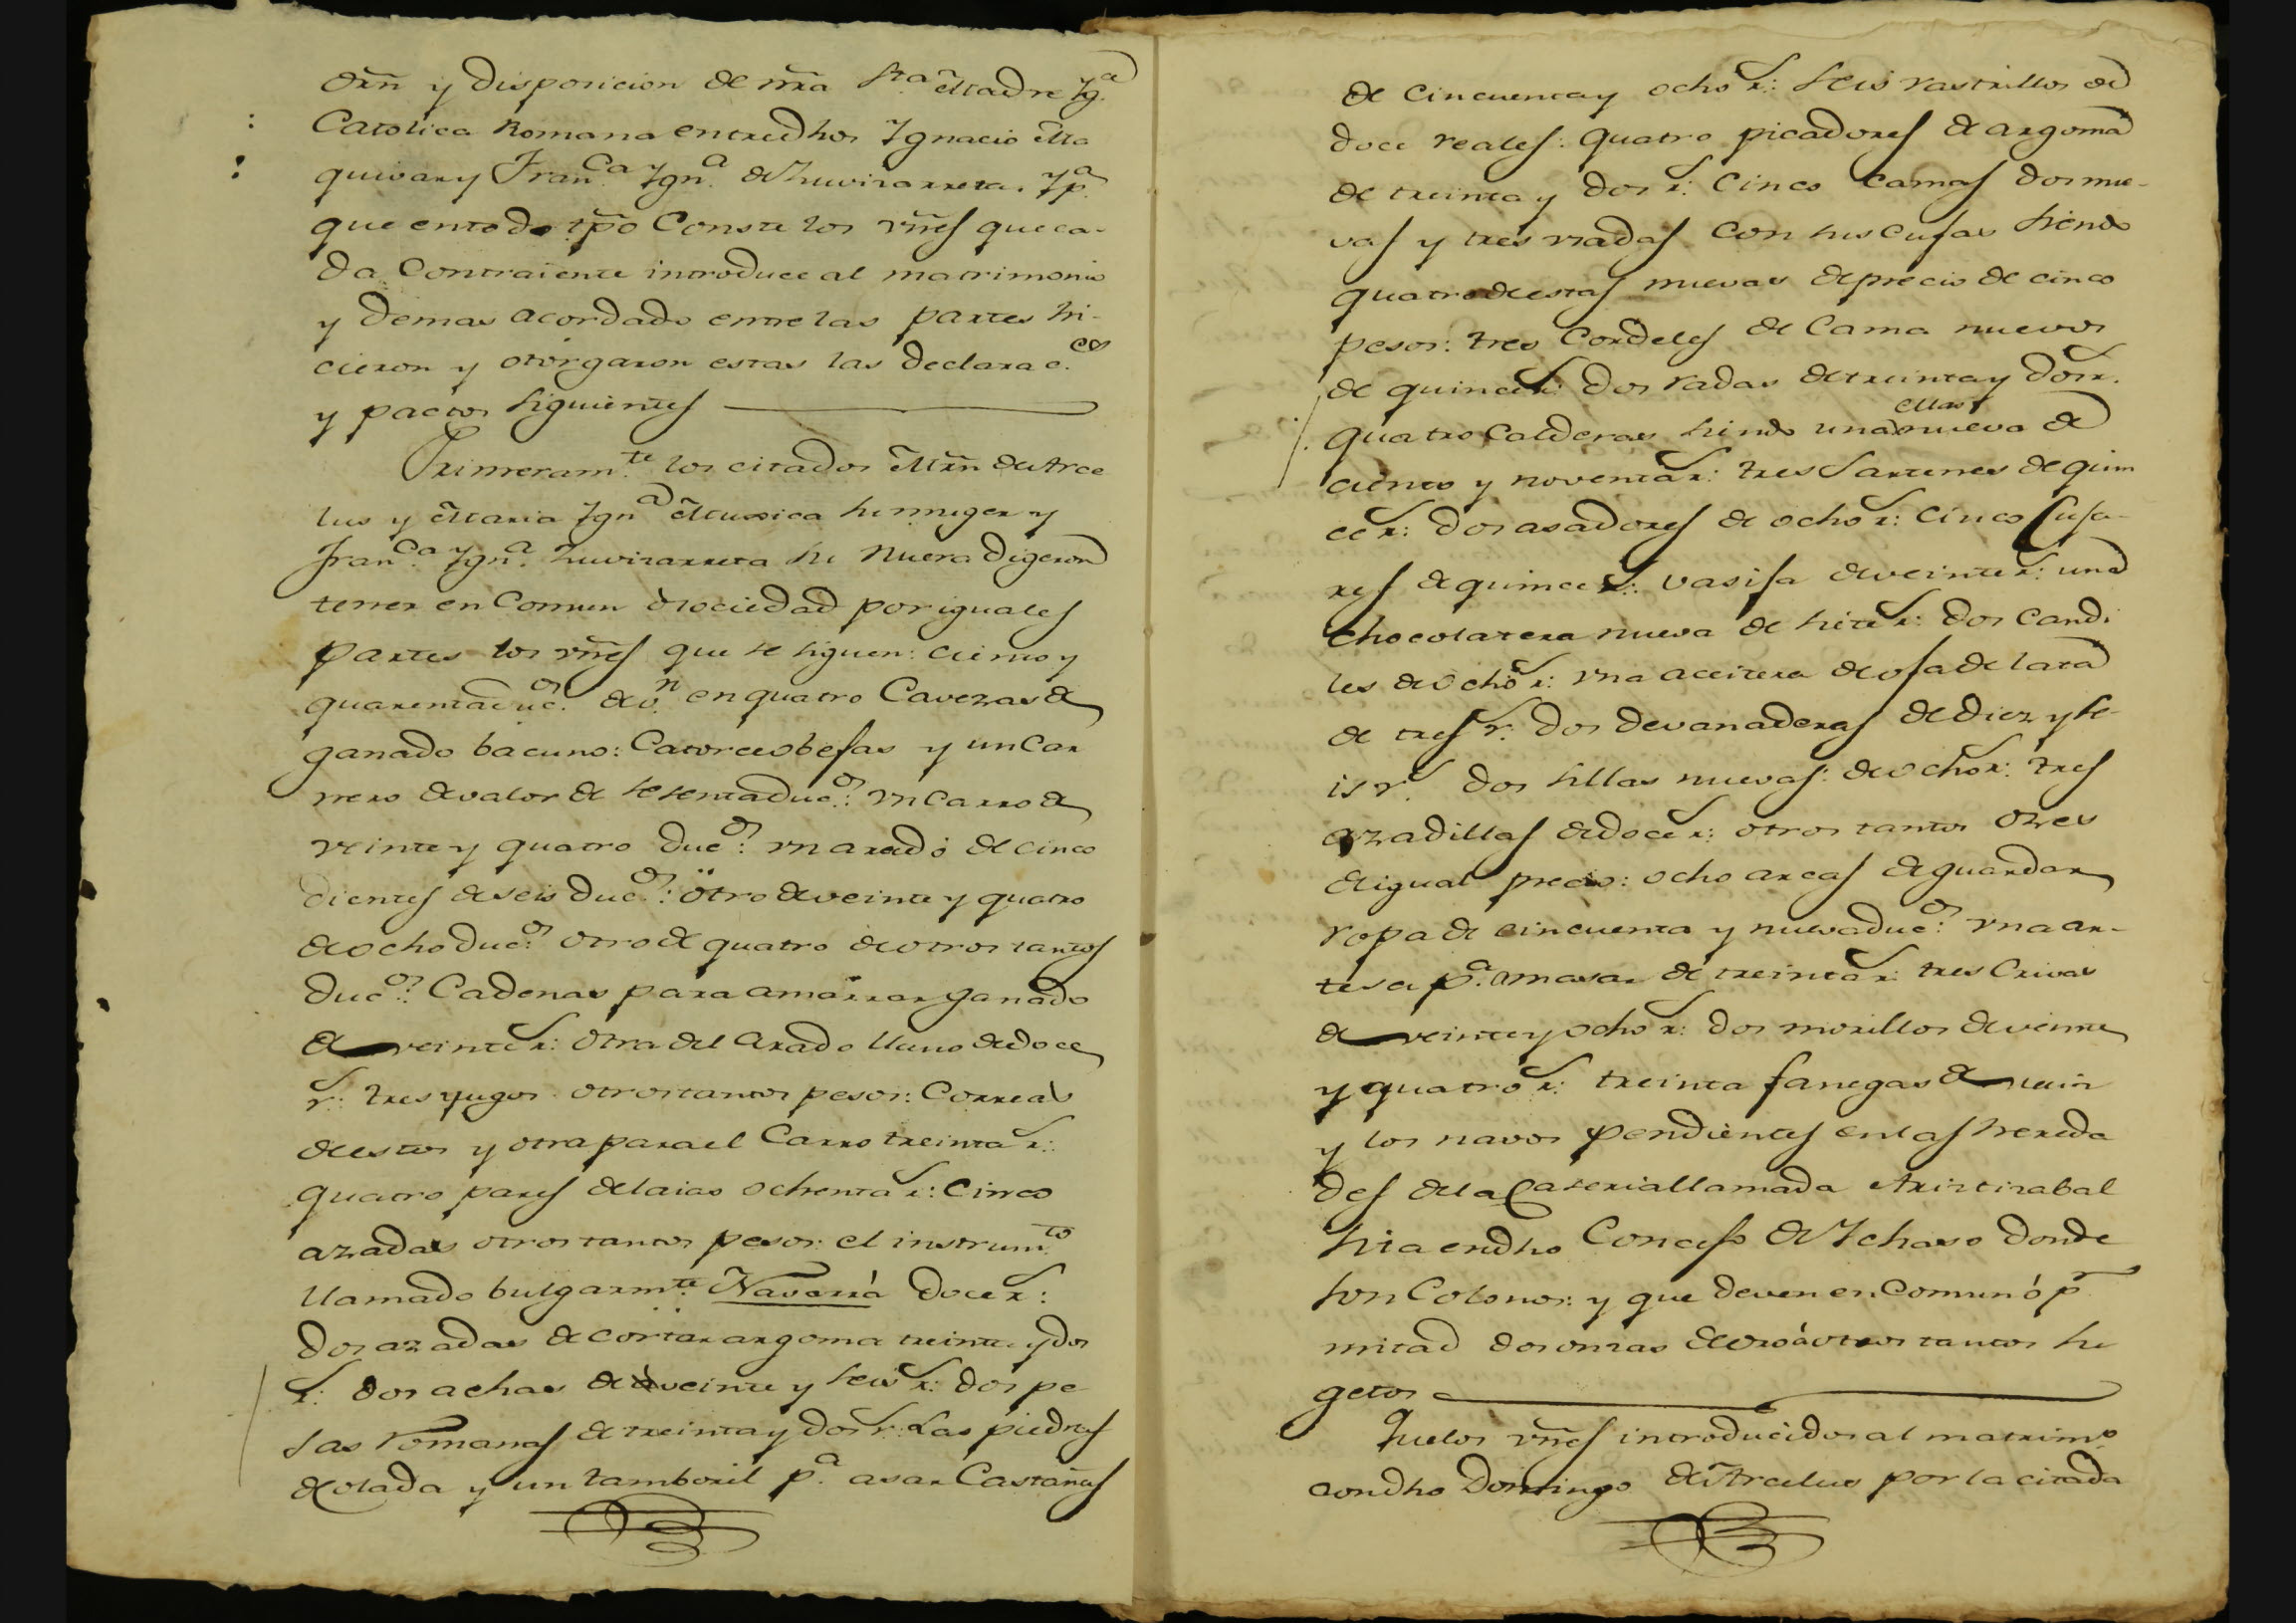 orñ y disposicion de nr̃a Sta. Madre Ygª
Catolica Romana entre dhos Ygnacio Ma
quivar y Franca. Ygnª. de Zuvizarreta. Y pª.
que en todo tpõ Conste los vñes que ca-
da Contraiente introduce al matrimonio
y demas acordado entre las partes hi-
cieron y otorgaron estas las declarac.es
y pactos siguientes
Primeramte. los citados Mrñ de Arce
lus y Maria Ygnª Muxica su muger y
Franca. Ygnª. Zuvizarreta su Nuera digeron
tener en Comun ó sociedad por iguales
partes los vñes que se siguen: ciento y
quarenta duc.os de v.n en quatro Cavezas de
ganado bacuno: Catorce obejas y un Car
nero de valor de sesenta duc.os: vn Carro de
veinte y quatro duc.os: vn arado de cinco
dientes de seis duc.os: otro de veinte y quatro
de ocho duc.os otro de quatro de otros tantos
duc.os: Cadenas para amarrar ganado
de veinte r.s: Otra del Arado llano de doce
r.s: tres yugos otros tantos pesos: Correas
de estos y otra para el Carro treinta r.s:
quatro pares de laias ochenta r.s: Cinco
azadas otros tantos pesos: el instrum.to
llamado bulgarm.te Navarrá doce r.s:
dos azadas de cortar argoma treinta y dos
r.s: dos achas de veinte y seis r.s: dos pe
sas romanas de treinta y dos r.s: Las piedras
de olada y un tamboril p.a asar Castañas
de cincuenta y ocho r.s: seis rastrillos de
doce reales: quatro picadores de argoma
de treinta y dos r.s: Cinco camas dos nue-
vas y tres vsadas con sus cujas siendo
quatro de estas nuevas de precio de cinco
pesos: tres Cordeles de Cama nuevos
de quince r.s: dos radas de treinta y dos r.
ellas
quatro Calderas siendo una nueva de
ciento y noventa r.s: tres Sartenes de quin
ce r.s: dos asadores de ocho r.s: cinco Cusa-
res de quince r.s: vasija de veinte r.s: una
chocolatera nueva de siete r.s: dos candi
les de ocho r.s: vna aceitera de oja de lata
de tres r.s: dos devanaderas de diez y se-
is r.s dos sillas nuevas: de ocho r.s: tres
azadillas de doce r.s: otros tantos Ozes
de igual precio: ocho arcas de guardar
ropa de cincuenta y nueva duc.os: vna ar-
tesa p.a amasar de treinta r.s: tres Crivas
de veinte y ocho r.s: dos morillos de veinte
y quatro r.s: treinta fanegas de maiz
y los navos pendientes en las hereda
des de la Caseria llamada Ariztizabal
sia en dho Concejo de Ychaso donde
son Colonos: y que deven en Comun ó p.r
mitad dos onzas de oro á otros tantos su
getos
Que los vñes introducidos al matrim.o
con dho Domingo de Arcelus por la citada